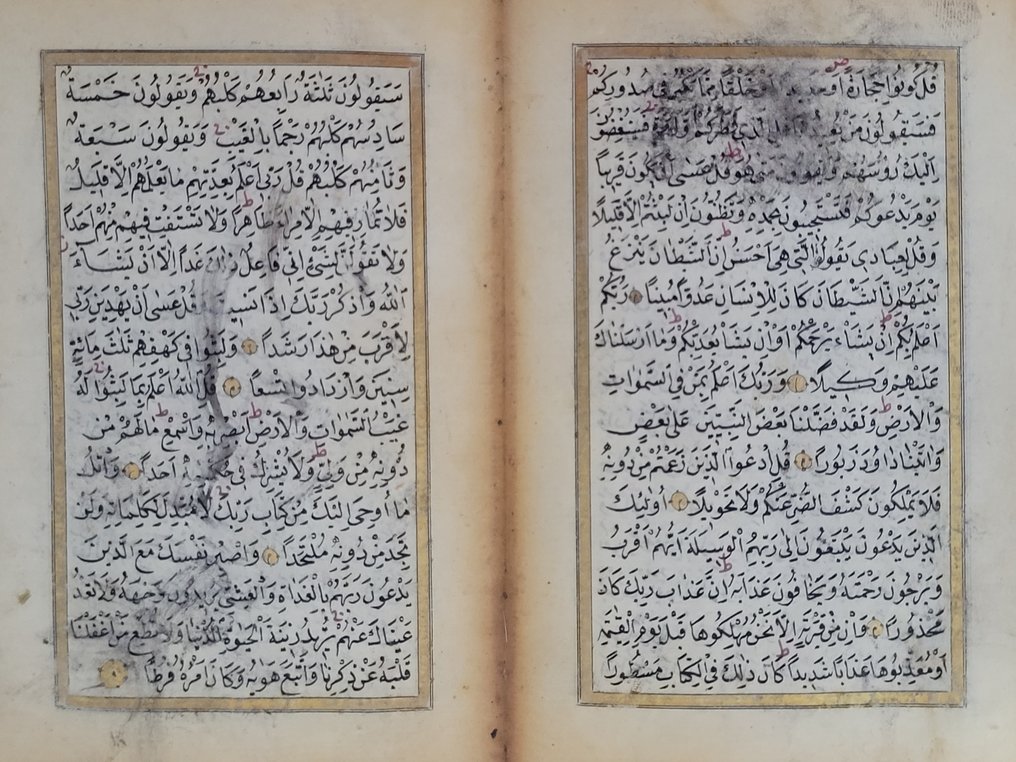 قُلْ كُونُوا حِجَارَةً اَوْ حَدِيدًا اَوْ خَلْقًا مِمَّا يَكْبُرُ فِي صُدُورِكُمْ
فَسَيَقُولُونَ مَنْ يُعِيدُنَا قُلِ الَّذِي فَطَرَكُمْ اَوَّلَ مَرَّةٍ فَسَيُنْغِضُونَ
اِلَيْكَ رُؤُسَهُمْ وَيَقُولُونَ مَتٰى هُوَ قُلْ عَسٰى اَنْ يَكُونَ قَرِيبًا
يَوْمَ يَدْعُوكُمْ فَتَسْتَجِيبُونَ بِحَمْدِهِ وَتَظُنُّونَ اِنْ لَبِثْتُمْ اِلَّا قَلِيلًا
وَقُلْ لِعِبَادِي يَقُولُوا الَّتِي هِيَ اَحْسَنُ اِنَّ الشَّيْطَانَ يَنْزَغُ
بَيْنَهُمْ اِنَّ الشَّيْطَانَ كَانَ لِلْاِنْسَانِ عَدُوًّا مُبِينًا رَبُّكُمْ
اَعْلَمُ بِكُمْ اِنْ يَشَأْ يَرْحَمْكُمْ اَوْ اِنْ يَشَأْ يُعَذِّبْكُمْ وَمَا اَرْسَلْنَاكَ
عَلَيْهِمْ وَكِيلًا وَرَبُّكَ اَعْلَمُ بِمَنْ فِي السَّمٰوَاتِ
وَالْاَرْضِ وَلَقَدْ فَضَّلْنَا بَعْضَ النَّبِيِّينَ عَلٰى بَعْضٍ
وَاٰتَيْنَا دَاوُدَ زَبُورًا قُلِ ادْعُوا الَّذِينَ زَعَمْتُمْ مِنْ دُونِهِ
فَلَا يَمْلِكُونَ كَشْفَ الضُّرِّ عَنْكُمْ وَلَا تَحْوِيلًا اُولٰئِكَ
الَّذِينَ يَدْعُونَ يَبْتَغُونَ اِلٰى رَبِّهِمُ الْوَسِيلَةَ اَيُّهُمْ اَقْرَبُ
وَيَرْجُونَ رَحْمَتَهُ وَيَخَافُونَ عَذَابَهُ اِنَّ عَذَابَ رَبِّكَ كَانَ
مَحْذُورًا وَاِنْ مِنْ قَرْيَةٍ اِلَّا نَحْنُ مُهْلِكُوهَا قَبْلَ يَوْمِ الْقِيٰمَةِ
اَوْ مُعَذِّبُوهَا عَذَابًا شَدِيدًا كَانَ ذٰلِكَ فِي الْكِتَابِ مَسْطُورًا
سَيَقُولُونَ ثَلٰثَةٌ رَابِعُهُمْ كَلْبُهُمْ وَيَقُولُونَ خَمْسَةٌ
سَادِسُهُمْ كَلْبُهُمْ رَجْمًا بِالْغَيْبِ وَيَقُولُونَ سَبْعَةٌ
وَثَامِنُهُمْ كَلْبُهُمْ قُلْ رَبِّي اَعْلَمُ بِعِدَّتِهِمْ مَا يَعْلَمُهُمْ اِلَّا قَلِيلٌ
فَلَا تُمَارِ فِيهِمْ اِلَّا مِرَاءً ظَاهِرًا وَلَا تَسْتَفْتِ فِيهِمْ مِنْهُمْ اَحَدًا
وَلَا تَقُولَنَّ لِشَيْءٍ اِنِّي فَاعِلٌ ذٰلِكَ غَدًا اِلَّا اَنْ يَشَاءَ
اللّٰهُ وَاذْكُرْ رَبَّكَ اِذَا نَسِيتَ وَقُلْ عَسٰى اَنْ يَهْدِيَنِ رَبِّي
لِاَقْرَبَ مِنْ هٰذَا رَشَدًا وَلَبِثُوا فِي كَهْفِهِمْ ثَلٰثَ مِائَةٍ
سِنِينَ وَازْدَادُوا تِسْعًا قُلِ اللّٰهُ اَعْلَمُ بِمَا لَبِثُوا لَهُ
غَيْبُ السَّمٰوَاتِ وَالْاَرْضِ اَبْصِرْ بِهِ وَاَسْمِعْ مَا لَهُمْ مِنْ
دُونِهِ مِنْ وَلِيٍّ وَلَا يُشْرِكُ فِي حُكْمِهِ اَحَدًا وَاتْلُ
مَا اُوحِيَ اِلَيْكَ مِنْ كِتَابِ رَبِّكَ لَا مُبَدِّلَ لِكَلِمَاتِهِ وَلَنْ
تَجِدَ مِنْ دُونِهِ مُلْتَحَدًا وَاصْبِرْ نَفْسَكَ مَعَ الَّذِينَ
يَدْعُونَ رَبَّهُمْ بِالْغَدَاةِ وَالْعَشِيِّ يُرِيدُونَ وَجْهَهُ وَلَا تَعْدُ
عَيْنَاكَ عَنْهُمْ تُرِيدُ زِينَةَ الْحَيٰوةِ الدُّنْيَا وَلَا تُطِعْ مَنْ اَغْفَلْنَا
قَلْبَهُ عَنْ ذِكْرِنَا وَاتَّبَعَ هَوٰيهُ وَكَانَ اَمْرُهُ فُرُطًا